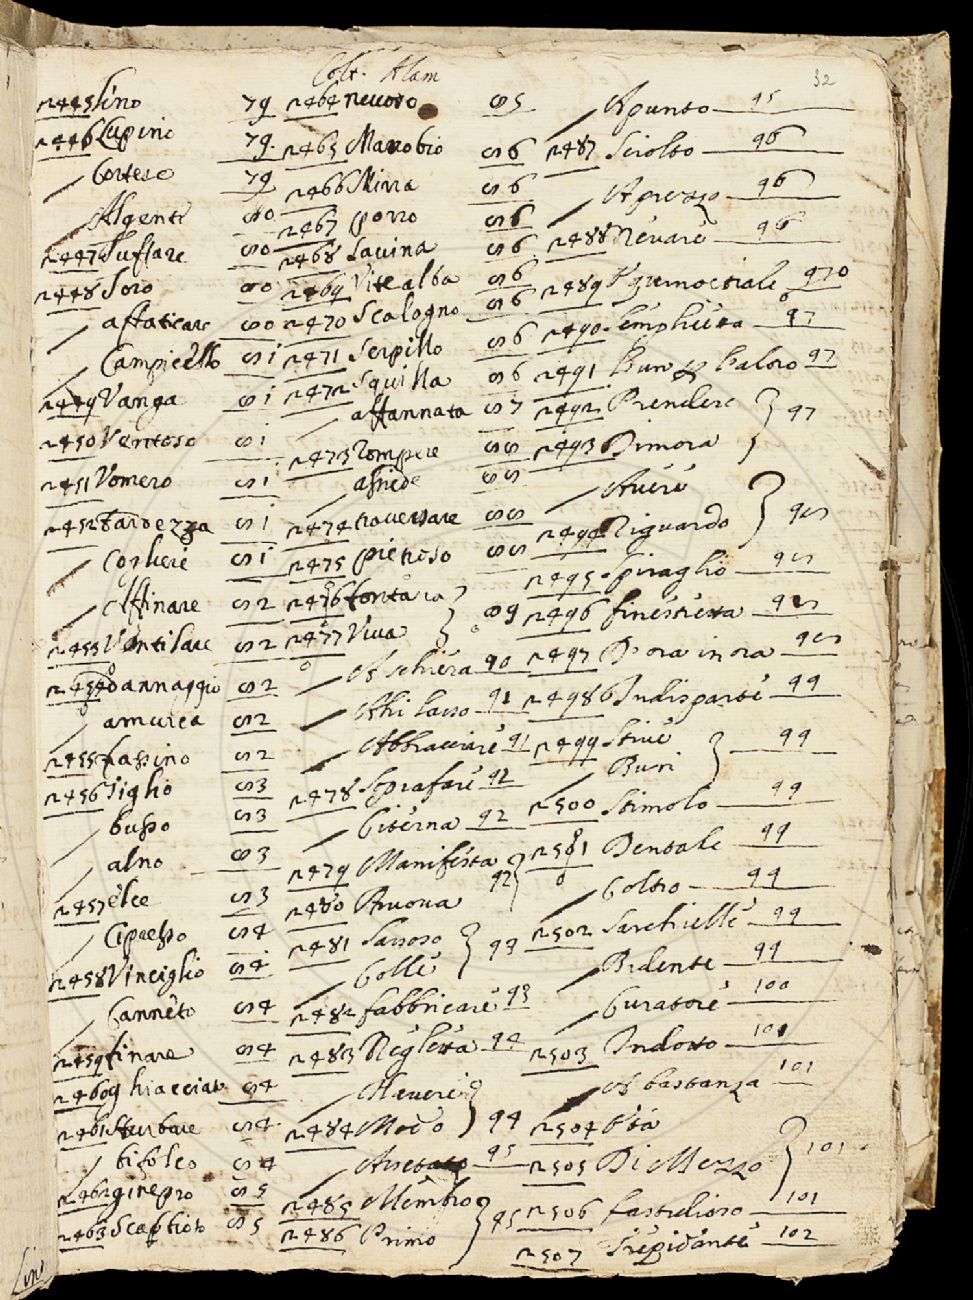 Colt. Alam
32
2445 Lino 79
2446 Lupino 79.
Cortese 79
Algente 80
2447 Suflare 80
2448 Soro 80
affaticare 80
Campicello 81
2449 Vanga 81
2450 Ventoso 81
2451 Vomero 81
2452 81
Coglieri 81
Affinare 82
2453 Ventilare 82
2454 dannaggio 82
amurca 82
2455 fassino 82
2456 Tiglio 83
busso 83
alno 83
2457 elce 83
Cipresso 84
2458 Vinciglio 84
Canneto 84
2459 finare 84
2460 ghiacciato 84
2461 turbare 84
bifolco 84
2462 ginepro 85
2463 85
2464 nevoso 85
2465 Marobio 86
2466 Mirra 86
2467 porro 86
2468 Savina 86
2469 Vite alba 86
2470 Scalogno 86
2471 Serpillo 86
2472 Squilla 86
affannata 87
2473 rompere 88
asside 88
2474 traversare 88
2475 pietroso 88
2476 fontana
2477 Viva 89
A schiera 90
Ahi lasso 91
Abbracciare 91
2478 Soprafare 92
Citerna 92
2479 Manifesta
2480 Pruova 92
2481 Sassoso
Colle 93
2482 fabbricare 93
2483 Negletta 94
Maniere
2484 Modo 94
95
2485 Membro
2486 Primo 95
Apunto 95
2487 Sciolto 96
Aprezzo 96
2488 Nevare 96
2489 970
2490 97
2491 Caloro 97
2492 Prendere
2493 Dimora 97
Avere
2494 Riguardo 98
2495 Spiraglio 98
2496 finestretta 98
2497 D'ora in ora 98
2498 Indisparte 99
2499 Stive
Buri 99
2500 Stimolo 99
2501 Dentale 99
Coltro 99
2502 Sarchielle 99
Bidente 99
Curatore 100
2503 Indotto 101
A bastanza 101
2504 Età
2505 Di Mezzo 101
2506 fastidioso 101
2507 Trepidante 102